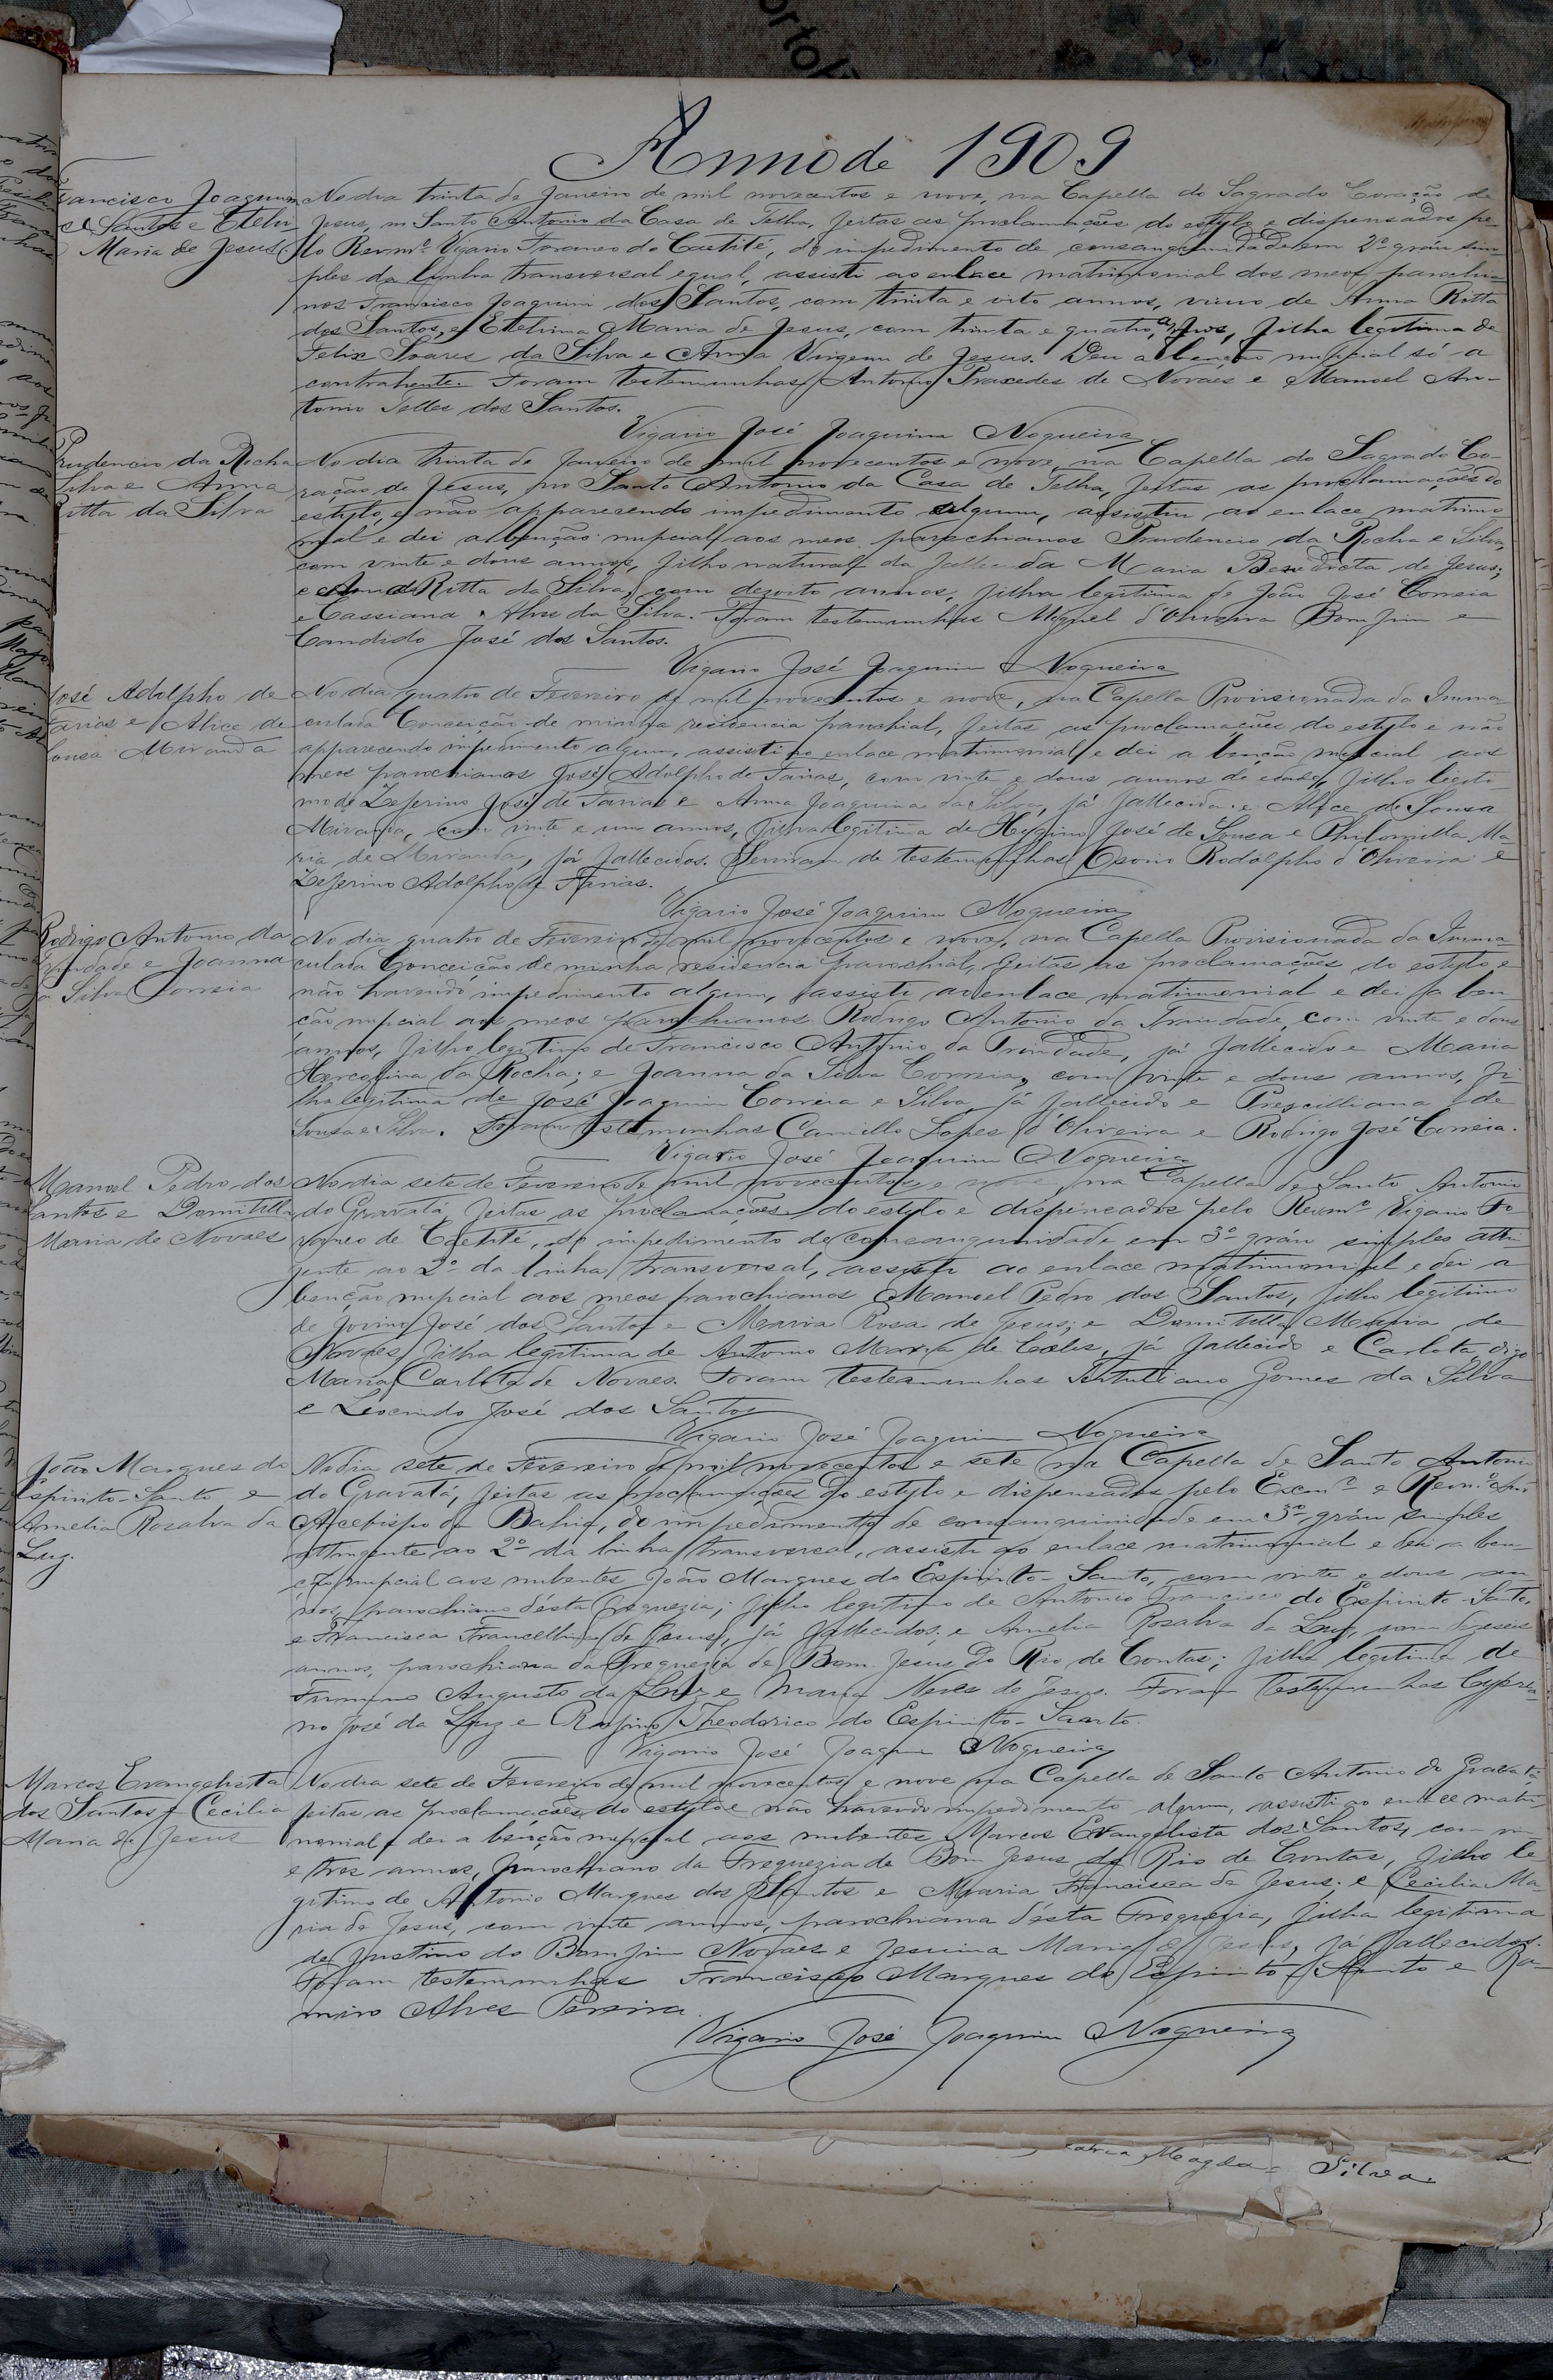 Anno de 1909
Francisco Joaquim
Santos e Etelvi
Maria de Jesus
No dia trinta de Janeiro de mil novecentos e nove, na Capella do Sagrado Coração de
Jesus, no Santo Antonio da Casa de Telha, feitas as proclamações do estylo e dispensados pe-
lo Revmº Vigario Foraneo do Caetité, do impedimento de consanguinidade em 2º gráu sim-
ples da linha transversal egual, assisti ao enlace matrimonial dos meos parochia-
nos Francisco Joaquim dos Santos, com trinta e oito annos, viuvo de Anna Ritta
dos Santos, e Etelvina Maria de Jesus, com trinta e quatro annos, filha legitima de
Felix Soares da Silva e Anna Virgem de Jesus. Deu a benção nupcial só a
contrahente. Foram testemunhas Antonio Praxedes de Novaes e Manoel An-
tonio Telles dos Santos.
Vigario José Joaquim Nogueira
Prudencio da Rocha
Silva e Anna
Ritta da Silva
No dia trinta de Janeiro de mil novecentos e nove, na Capella do Sagrado Co-
ração de Jesus, no Santo Antonio da Casa de Telha, feitas as proclamações do
estylo, e não apparecendo impedimento algum, assisti ao enlace matrimo
nial e dei a benção nupcial aos meos parochianos Prudencio da Rocha e Silva,
com vinte e dous annos, filho natural da fallecida Maria Benedicta de Jesus;
e Anna Ritta da Silva, com dezoito annos, filha legitima de João José Correia
e Cassiana Alves da Silva. Foram testemunhas Miguel d'Oliveira Bomfim e
Candido José dos Santos.
Vigario José Joaquim Nogueira
José Adolpho de
Farias e Alice de
Sousa Miranda
No dia quatro de Fevereiro de mil novecentos e nove, na Capella Provisionada da Imma-
culada Conceição de minha residencia parochial, feitas as proclamações do estylo e não
apparecendo impedimento algum, assisti ao enlace matrimonial e dei a benção nupcial aos
meos parochianos José Adolpho de Farias, com vinte e dous annos de edade, filho legiti-
mo de Zeferino José de Farias e Anna Joaquina da Silva, já fallecida. e Alice de Sousa
Miranda, com vinte e um annos, filha legitima de Hygino José de Sousa e Philomilla Ma-
ria de Miranda, já fallecidos. Serviram de testemunhas Osorio Rodolpho d'Oliveira e
Zeferino Adolpho de Farias.
Vigario José Joaquim Nogueira
Rodrigo Antonio da
Trindade e Joanna
da Silva Correia
No dia quatro de Fevereiro de mil novecentos e nove, na Capella Provisionada da Imma-
culada Conceição de minha residencia parochial, feitas as proclamações do estylo e
não havendo impedimento algum, assisti ao enlace matrimonial e dei a ben-
ção nupcial aos meos parochianos Rodrigo Antonio da Trindade, com vinte e dous
annos, filho legitimo de Francisco Antonio da Trindade, já fallecido e Maria
Hercolina da Rocha; e Joanna da Silva Correia, com vinte e dous annos, fi-
lha legitima de José Joaquim Correia e Silva, já fallecido e Prescilliana de
Sousa e Silva. Foram testemunhas Camillo Lopes d'Oliveira e Rodrigo José Correia.
Vigario José Joaquim Nogueira
Manoel Pedro dos
Santos e Domitilla
Maria de Novaes
No dia sete de Fevereiro de mil novecentos e nove, na Capella de Santo Antonio
do Gravatá, feitas as proclamações do estylo e dispensados pelo Revmº Vigario Fo
raneo de Caetité, do impedimento de consanguinidade em 3º gráu simples atti-
gente ao 2º da linha transversal, assisti ao enlace matrimonial e dei a
benção nupcial aos meos parochianos Manoel Pedro dos Santos, filho legitimo
de Jovino José dos Santos e Maria Rosa de Jesus; e Domitilla Maria de
Novaes, filha legitima de Antonio Maria de Celes, já fallecido e Carlota, digo
Maria Carlota de Novaes. Foram testemunhas Tertuliano Gomes da Silva
e Leocindo José dos Santos
Vigario José Joaquim Nogueira
João Marques do
Espirito-Santo e
Amelia Rosalva da
Luz.
No dia sete de Fevereiro de mil novecentos e sete na Capella de Santo Antonio
do Gravatá, feitas as proclamações do estylo e dispensados pelo Excmº e Revmº Snr.
Arcebispo da Bahia, do impedimento de consanguinidade em 3º gráu simples
attingente ao 2º da linha transversal, assisti ao enlace matrimonial e dei a ben-
ção nupcial aos nubentes João Marques do Espirito-Santo, com vinte e dous an-
nos, parochiano désta freguezia; filho legitimo de Antonio Francisco do Espirito-Santo,
e Francisca Francellina de Jesus, já fallecidos; e Amelia Rosalva da Luz, com dezeseis
annos, parochiana da Freguezia de Bom Jesus do Rio de Contas; filha legitima de
Firmino Augusto da Luz e Maria Neves de Jesus. Foram testemunhas Cypria-
no José da Luz e Rufino Theodorico do Espirito-Santo.
Vigario José Joaquim Nogueira
Marcos Evangelista
dos Santos e Cecilia
Maria de Jesus
No dia sete de Fevereiro de mil novecentos e nove na Capella de Santo Antonio do Gravatá,
feitas as proclamações do estylo e não havendo impedimento algum, assisti ao enlace matri-
monial e dei a benção nupcial aos nubentes Marcos Evangelista dos Santos, com vin
e tres annos, parochiano da Freguezia de Bom Jesus do Rio de Contas, filho le
gitimo de Antonio Marques dos Santos e Maria Francisca de Jesus. e Cecilia Ma-
ria de Jesus, com vinte annos, parochiana désta Freguezia, filha legitima
de Justino do Bomfim Novaes e Jesuina Maria de Jesus, já fallecidos.
Foram testemunhas Francisco Marques do Espirito Santo e Ra-
miro Alves Pereira.
Vigario José Joaquim Nogueira
Magda Silva